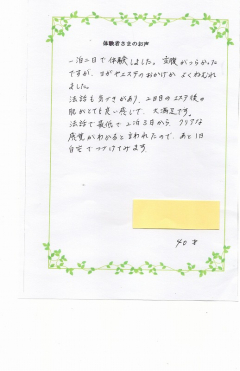 体験者さまのお声
一泊二日で体験しました。空腹がつらかった
ですが、ヨガやエステのおかげか よくねむれ
ました。
法話も気づきがあり、2日目のエステ後の
肌がとても良い感じで、大満足です。
法話で最低で2泊3日から、クリアな
感覚がわかると言われたので、あと1日
自宅でつづけてみます。
40才